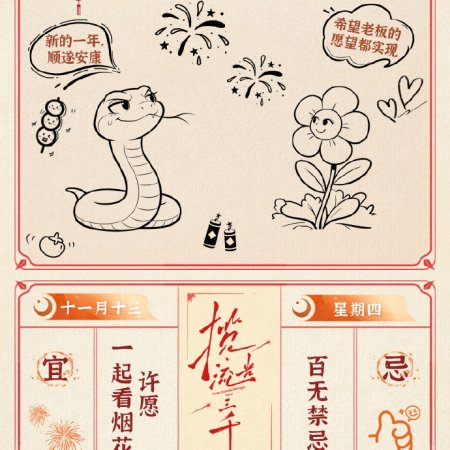 新的一年,
顺遂安康
希望老板的
愿望都实现
十一月十三
星期四
宜
许愿
一起看烟花
揽流光
三千
百无禁忌
忌